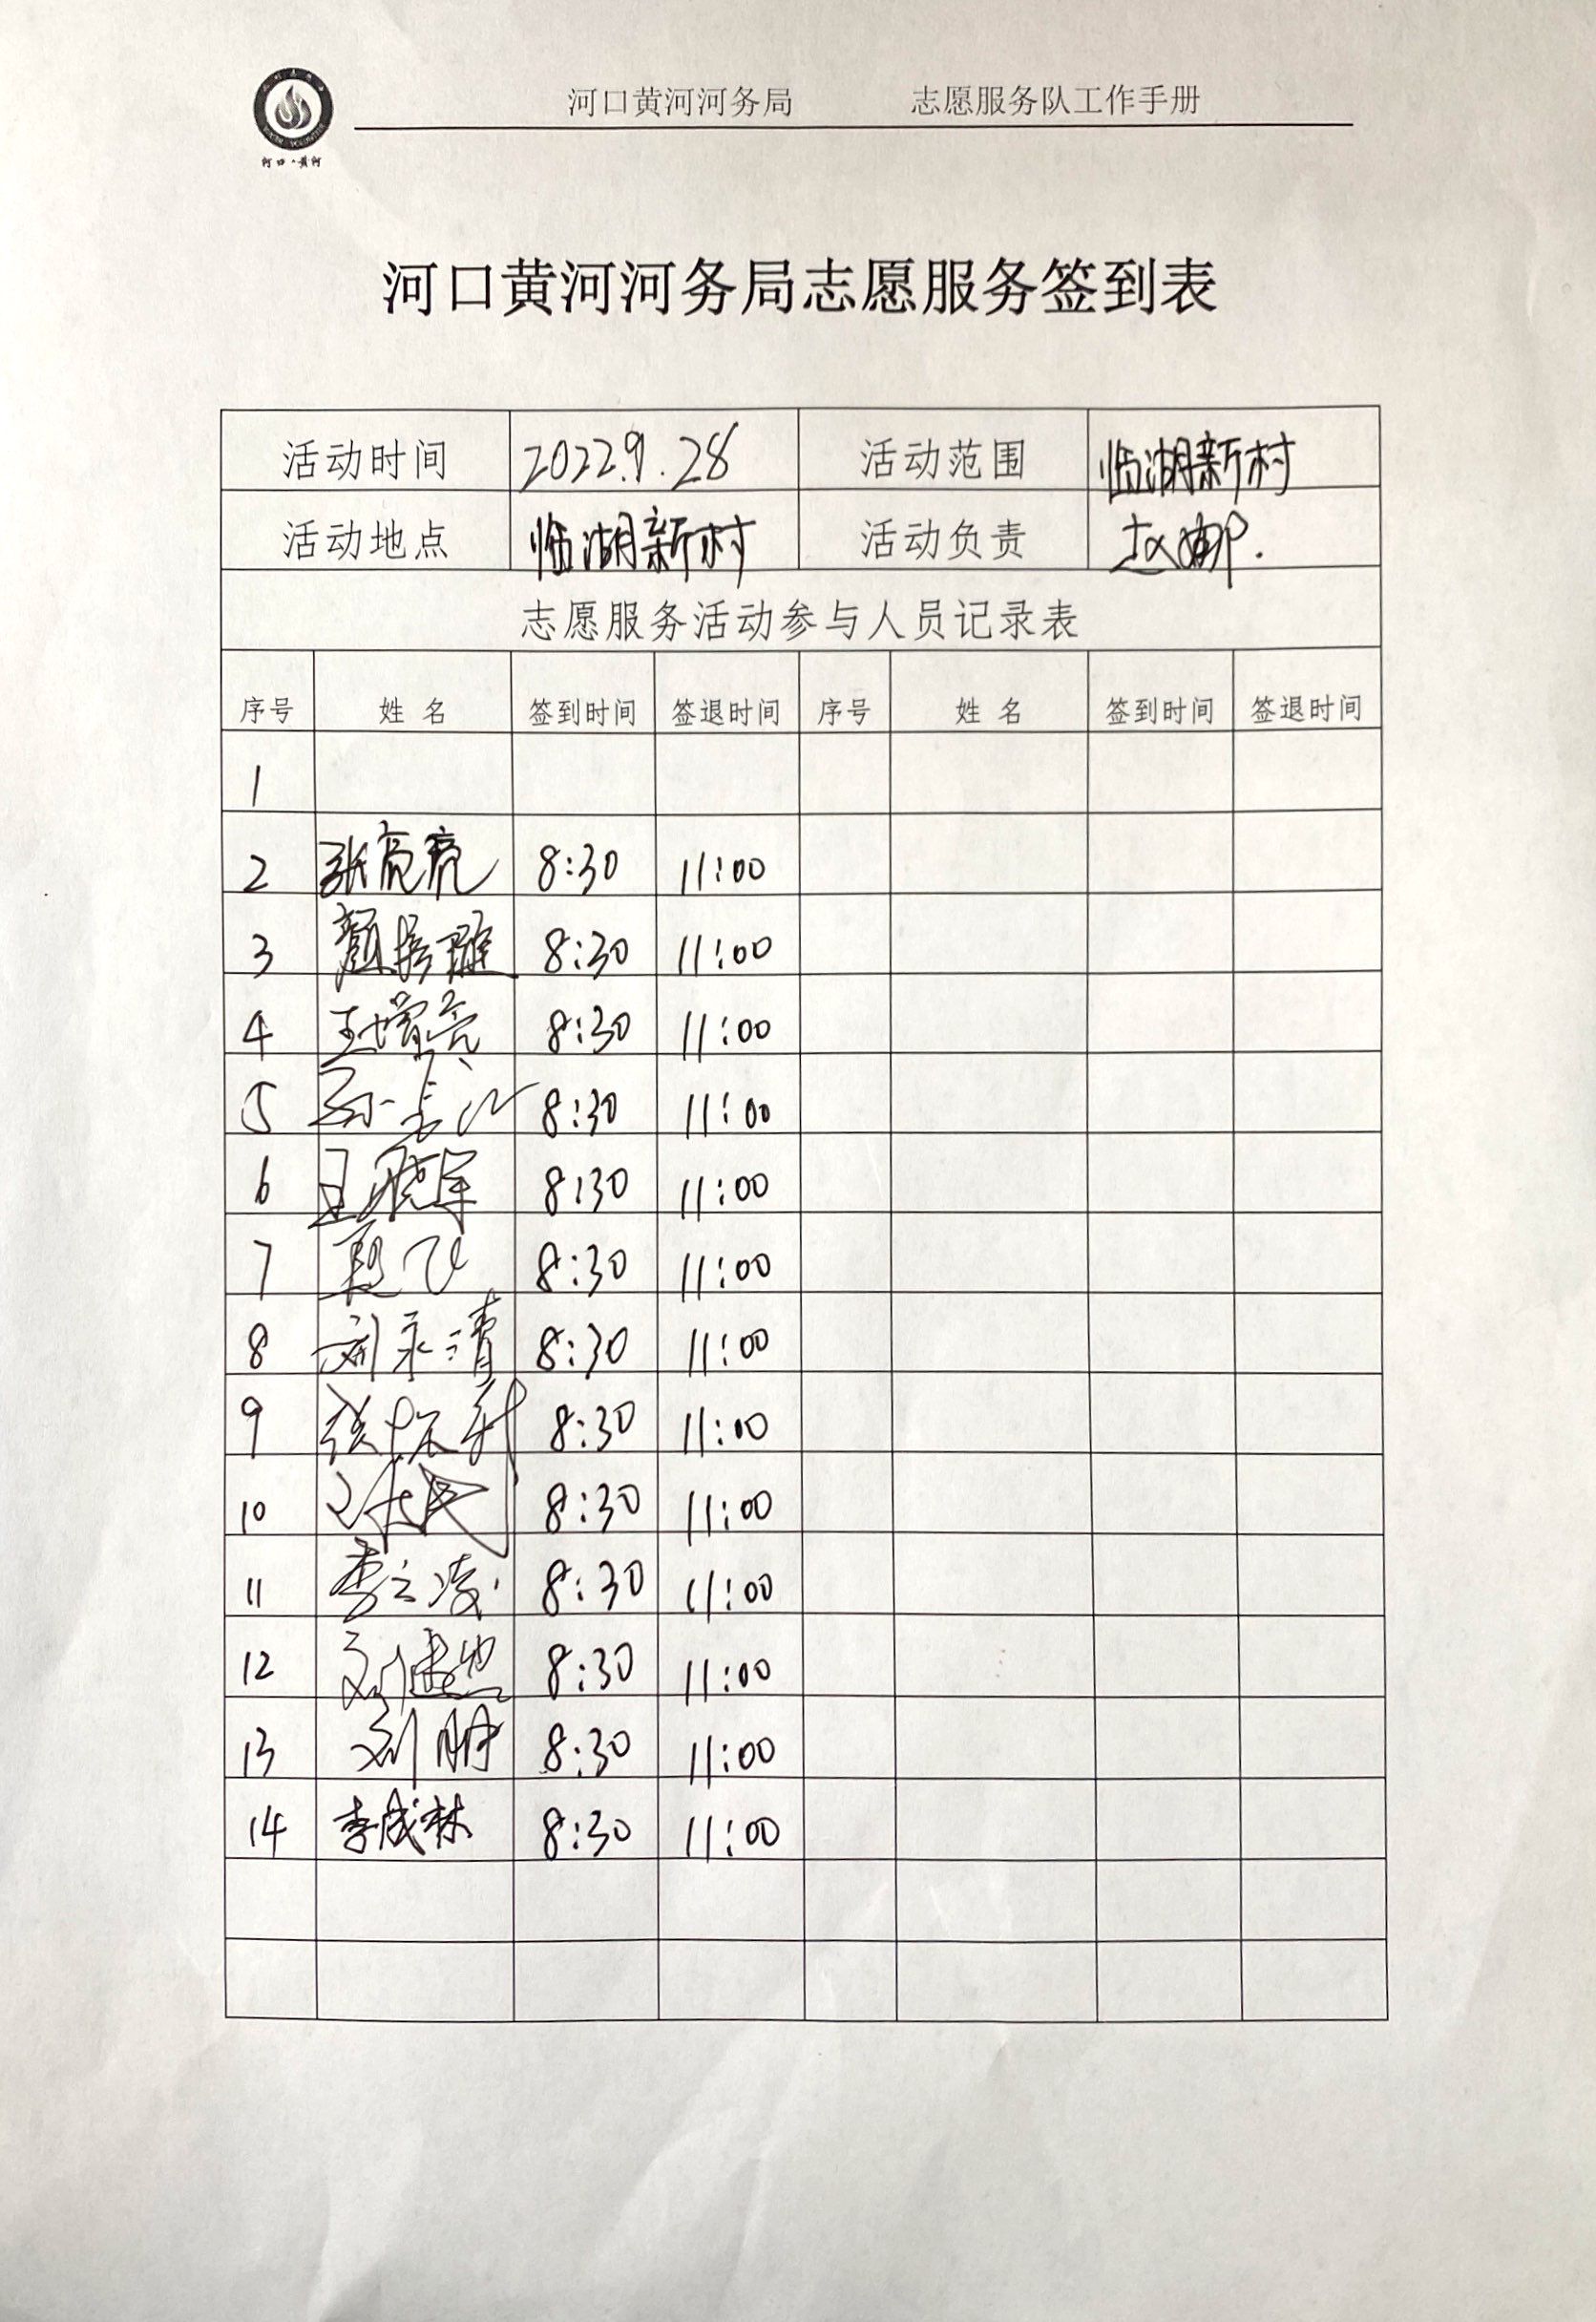 河口黄河河务局 志愿服务队工作手册
河口·黄河
河口黄河河务局志愿服务签到表
活动时间 2022.9.28 活动范围 临湖新村
活动地点 临湖新村 活动负责 赵娜.
志愿服务活动参与人员记录表
序号 姓名 签到时间 签退时间 序号 姓名 签到时间 签退时间
1
2 张亮亮 8:30 11:00
3 8:30 11:00
4 王增亮 8:30 11:00
5 8:30 11:00
6 王晓军 8:30 11:00
7 段飞 8:30 11:00
8 刘永清 8:30 11:00
9 8:30 11:00
10 8:30 11:00
11 李立凌 8:30 11:00
12 8:30 11:00
13 刘 8:30 11:00
14 李成林 8:30 11:00